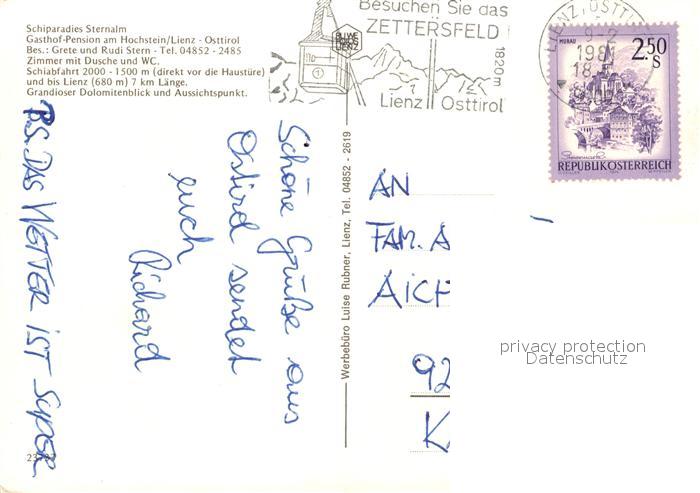 Schiparadies Sternalm
Gasthof-Pension am Hochstein/Lienz - Osttirol
Bes.: Grete und Rudi Stern - Tel. 04852 - 2485
Zimmer mit Dusche und WC.
Schiabfahrt 2000 - 1500 m (direkt vor die Haustüre)
und bis Lienz (680 m) 7 km Länge.
Grandioser Dolomitenblick und Aussichtspunkt.
Besuchen Sie das
ZETTERSFELD
1820m
Lienz Osttirol
LIENZ, OSTTI
1981
18
MURAU
2.50
S
REPUBLIK ÖSTERREICH
Schöne Grüße aus
Osttirol sendet
euch
Richard
P.S. DAS WETTER IST SUPER
Werbebüro Luise Rubner, Lienz, Tel. 04852 - 2619
AN
FAM. A
AICH
92
K
privacy protection
Datenschutz